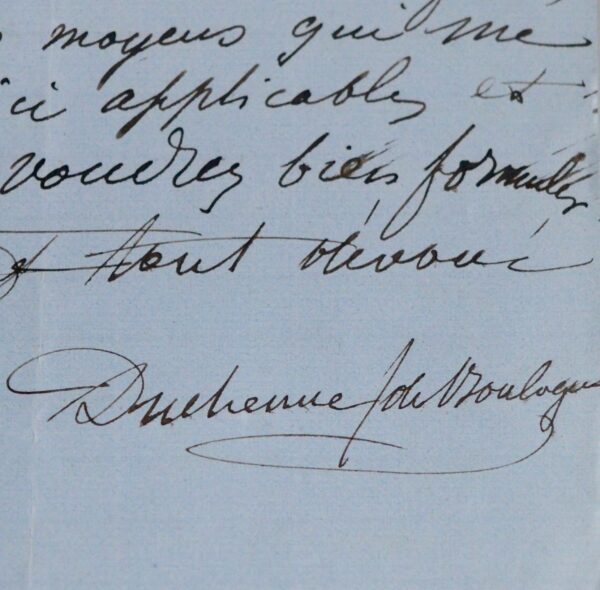 moyens qui me
ici applicables et
voudrez bien formuler
tout dévoué
Duchenne (de Boulogne